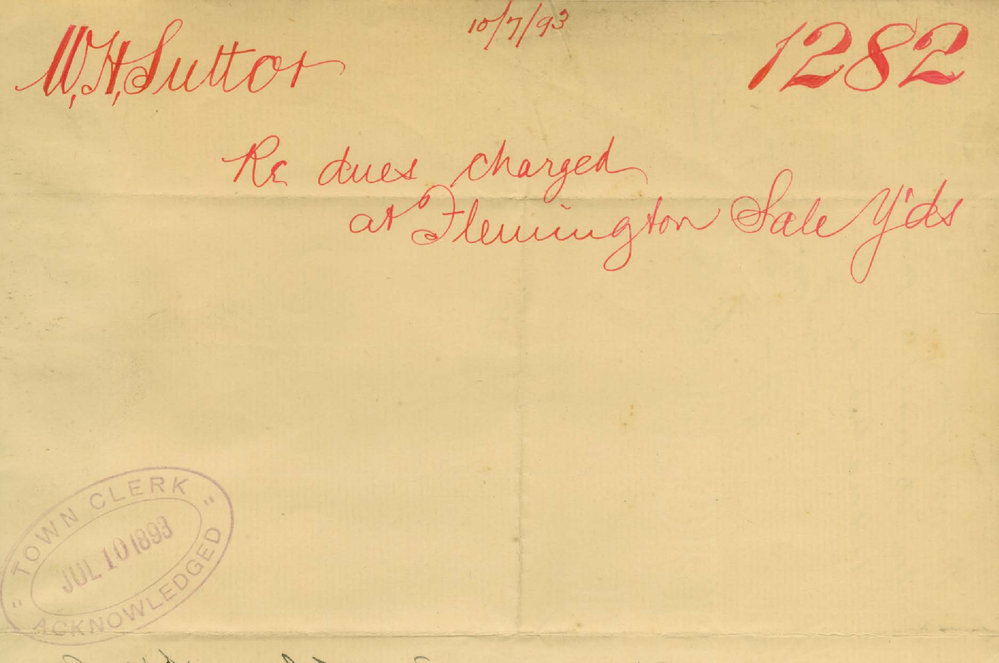 10/7/93
W, H, Suttor 1282
Re dues charged
at Flemington Sale Y'ds
" TOWN CLERK "
JUL 10 1893
ACKNOWLEDGED